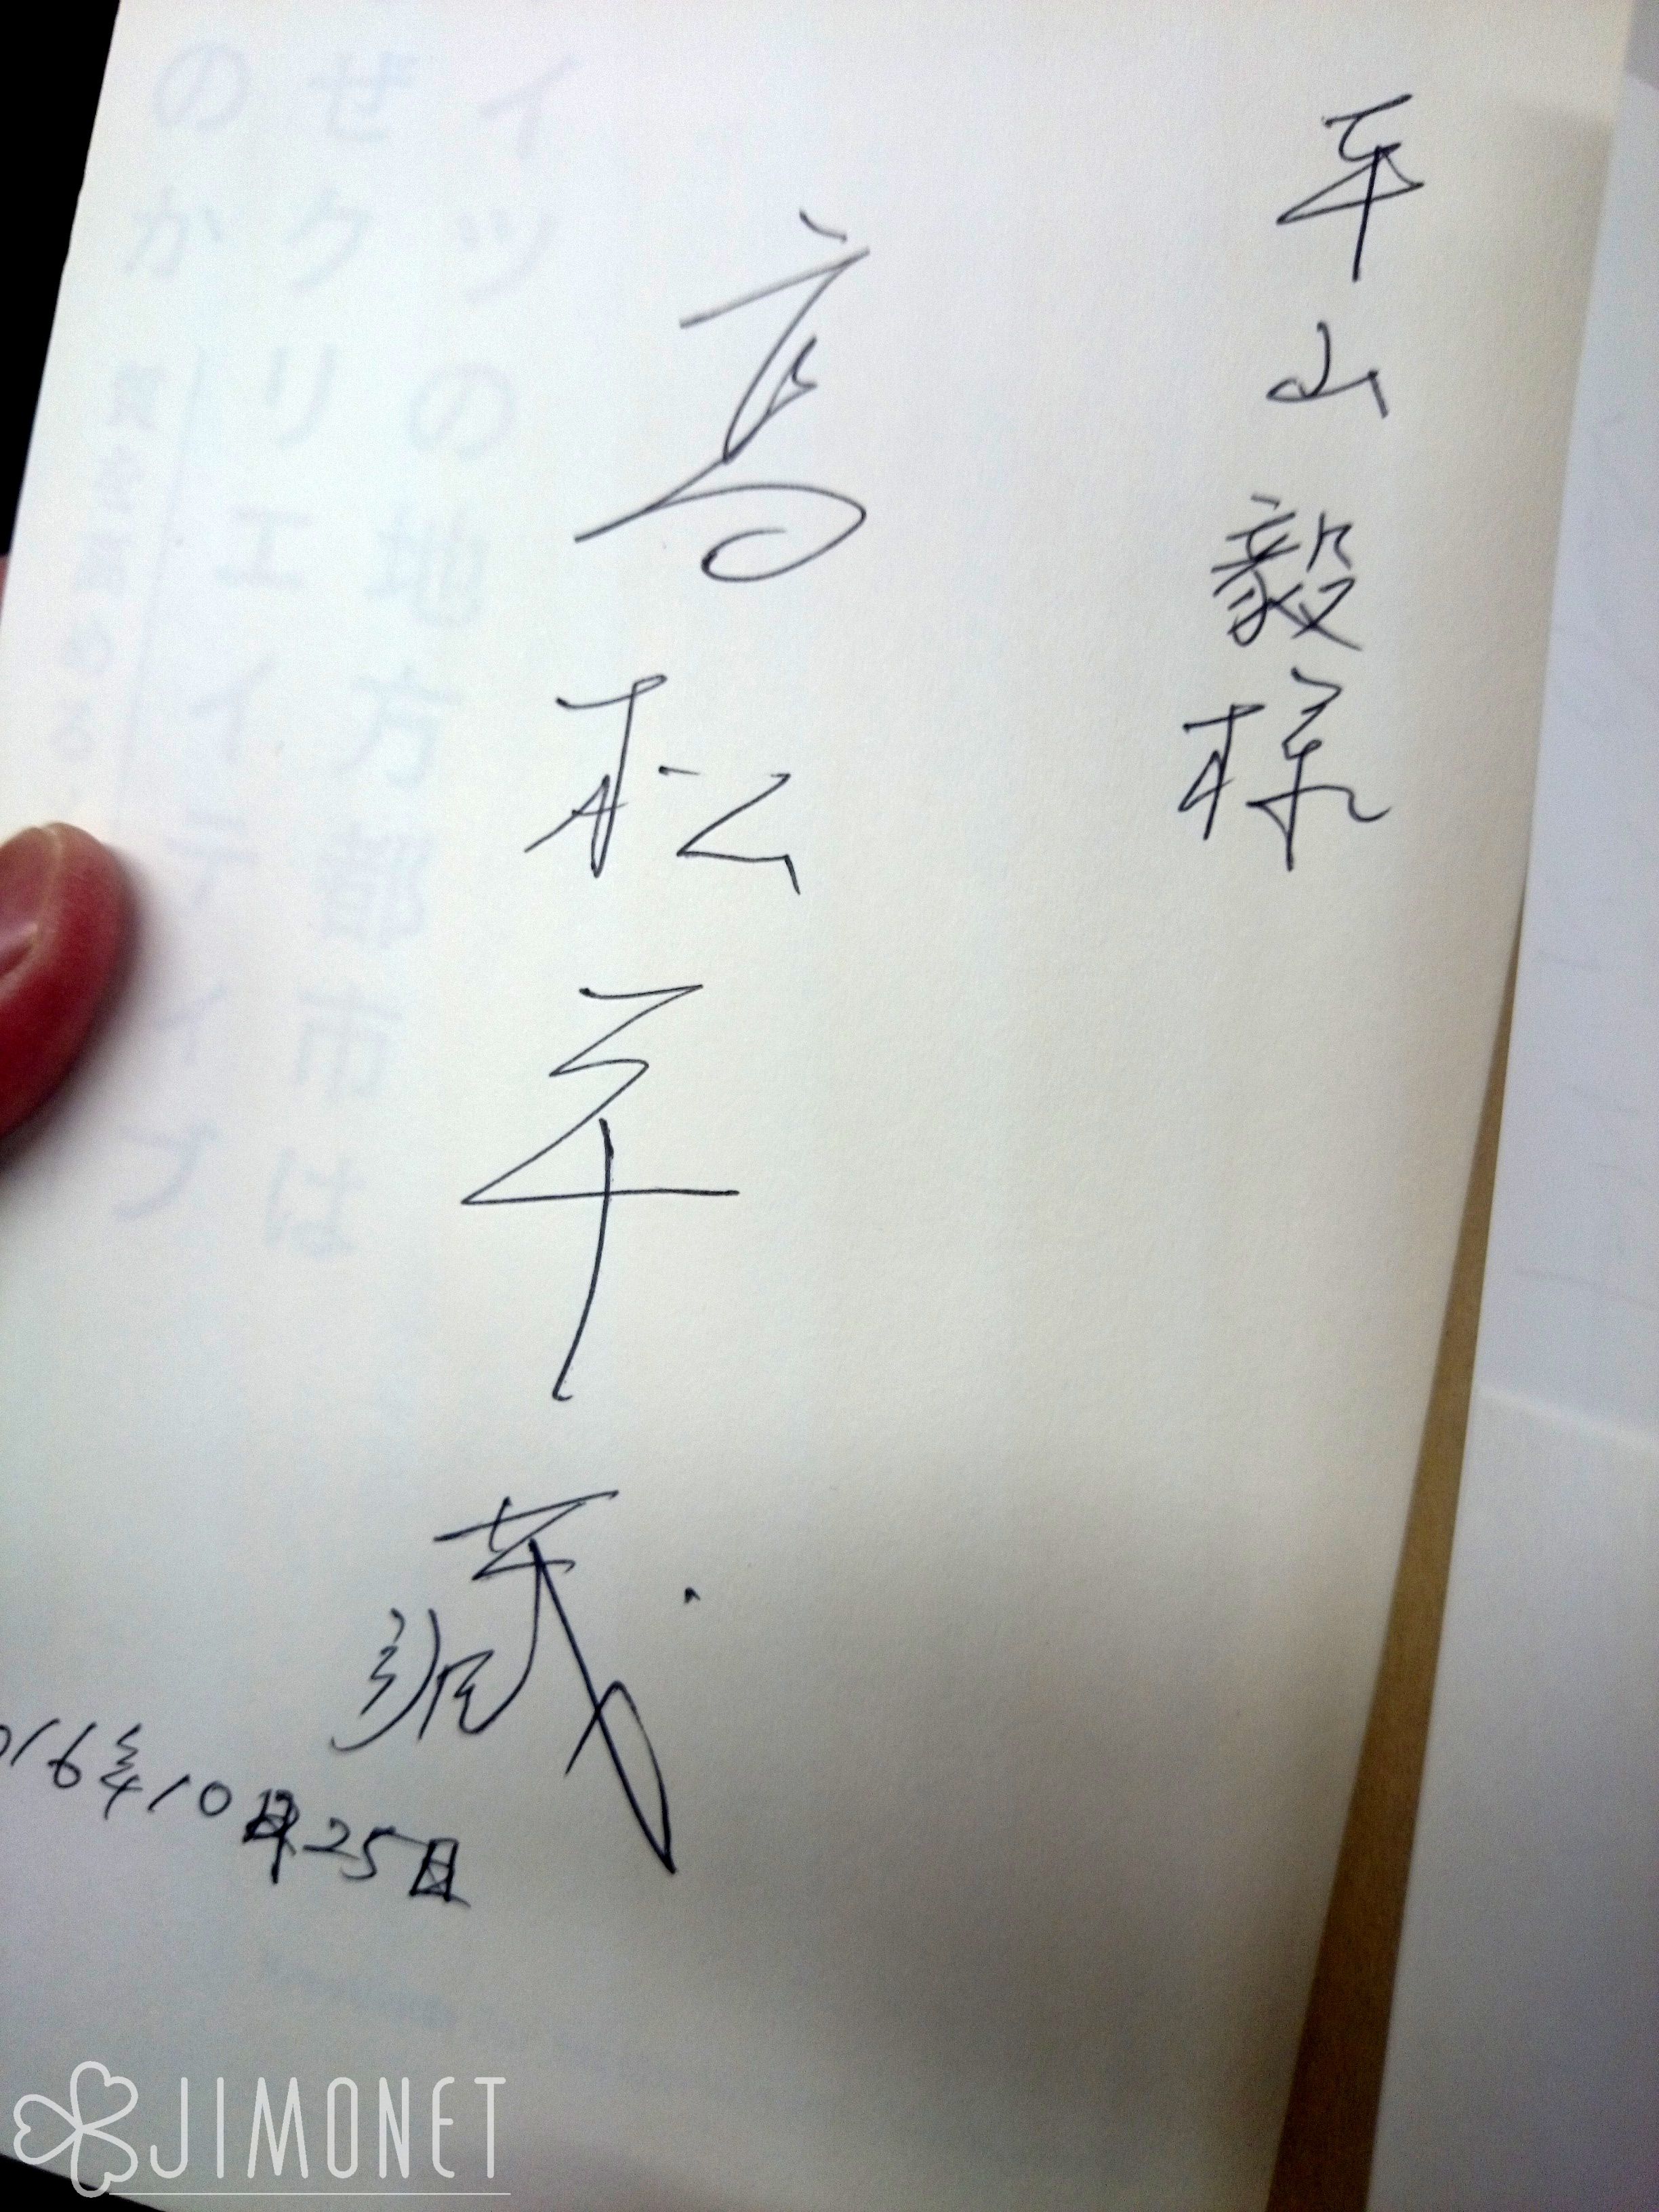 平山毅様
高松平藏
016年10月25日
イツの地方都市は
ぜクリエイティブ
のか
質を高める
JIMONET